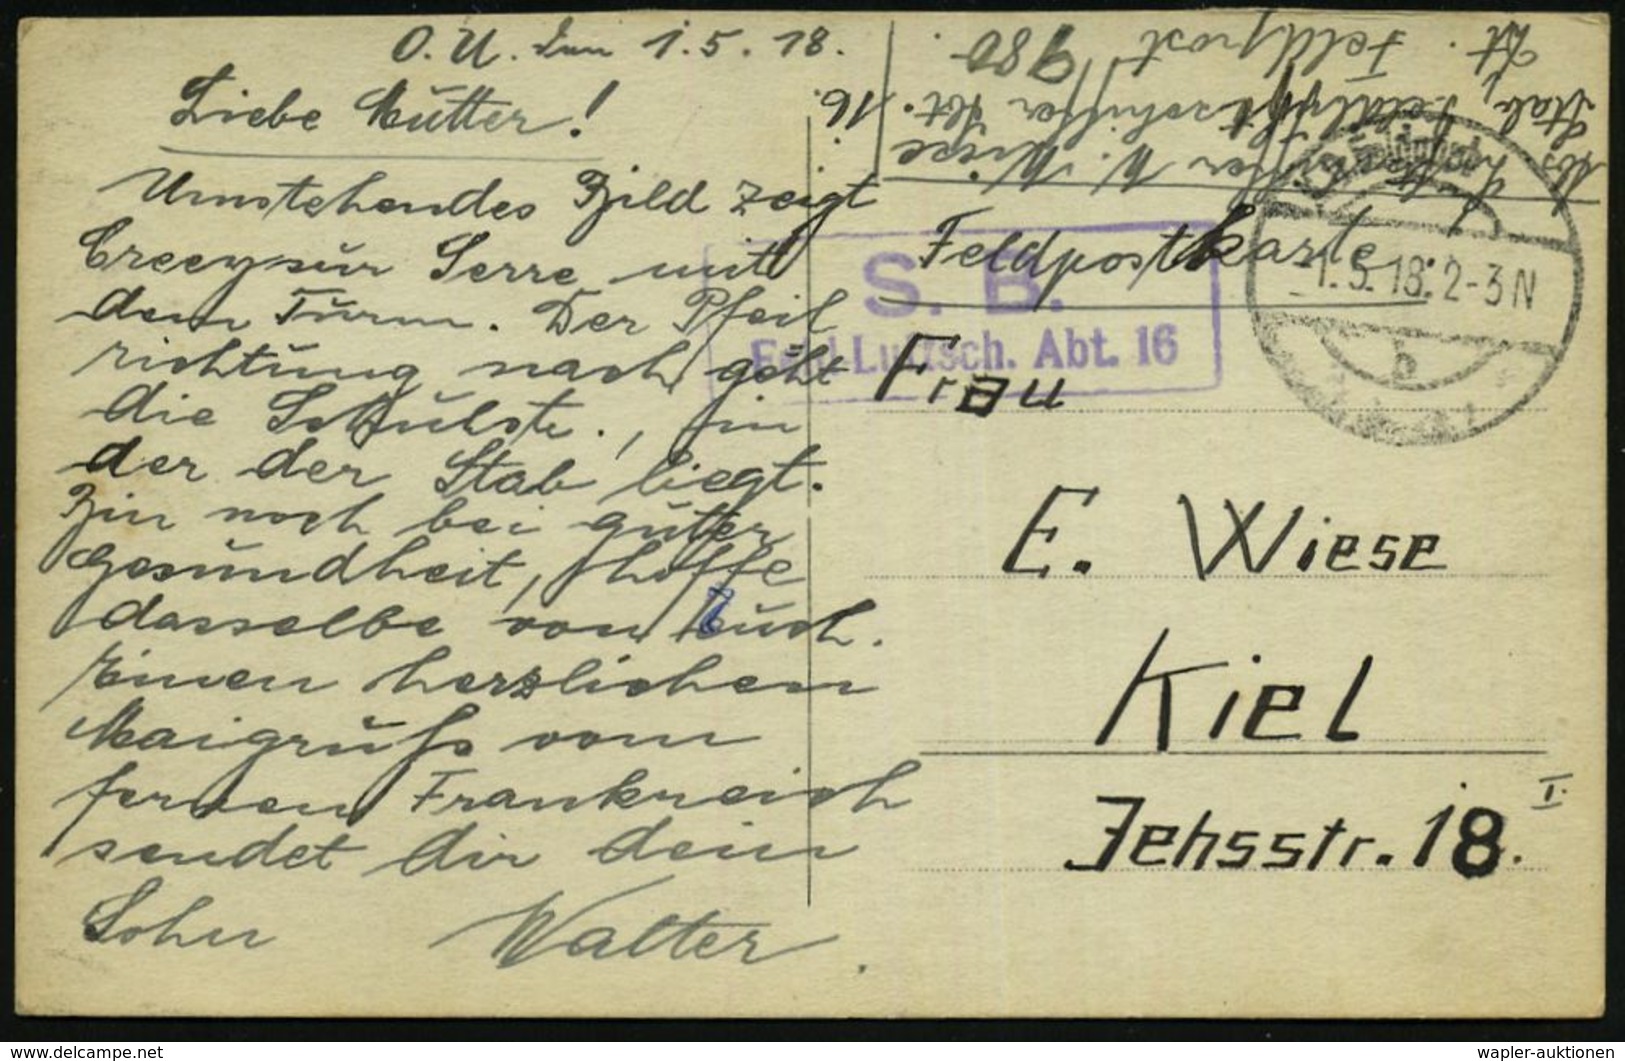 O.U. den 1.5.18.
Liebe Mutter!
Umstehendes Bild zeigt
Crecy sur Serre mit
dem Turm. Der Pfeil
richtung nach geht
die Schulstr., in
der der Stab liegt.
Bin noch bei guter
Gesundheit, hoffe
dasselbe von Euch.
Einen herzlichen
Maigruß vom
fernen Frankreich
sendet dir dein
Sohn Walter.
Abs. Luftschiffer W. Wiese
Stab, Feldluftschiffer Abt. 16.
Zt. Feldpost 980.
Feldpostkarte.
S. B.
Feld-Luftsch. Abt. 16
-1.5.18. 2-3 N
b
Frau
E. Wiese
Kiel
Jehsstr. 18. I.
wapler-auktionen.de
wapler-auktionen